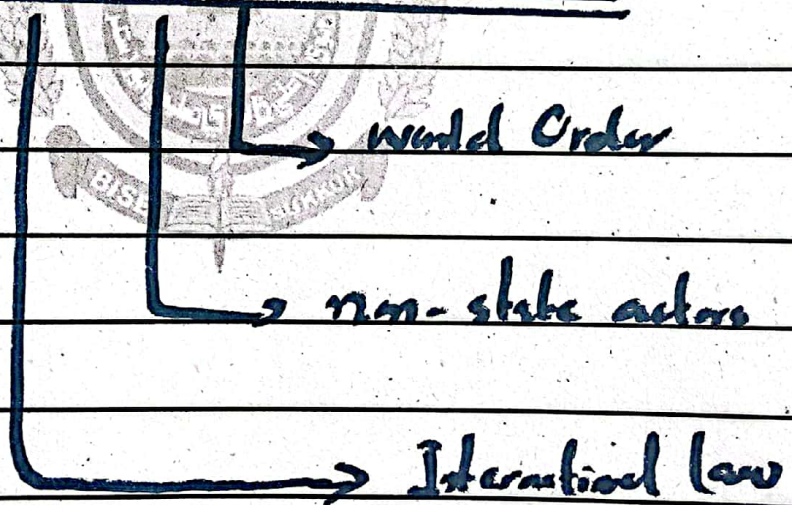 BISE SUKKUR
world Order
non-state actors
International law